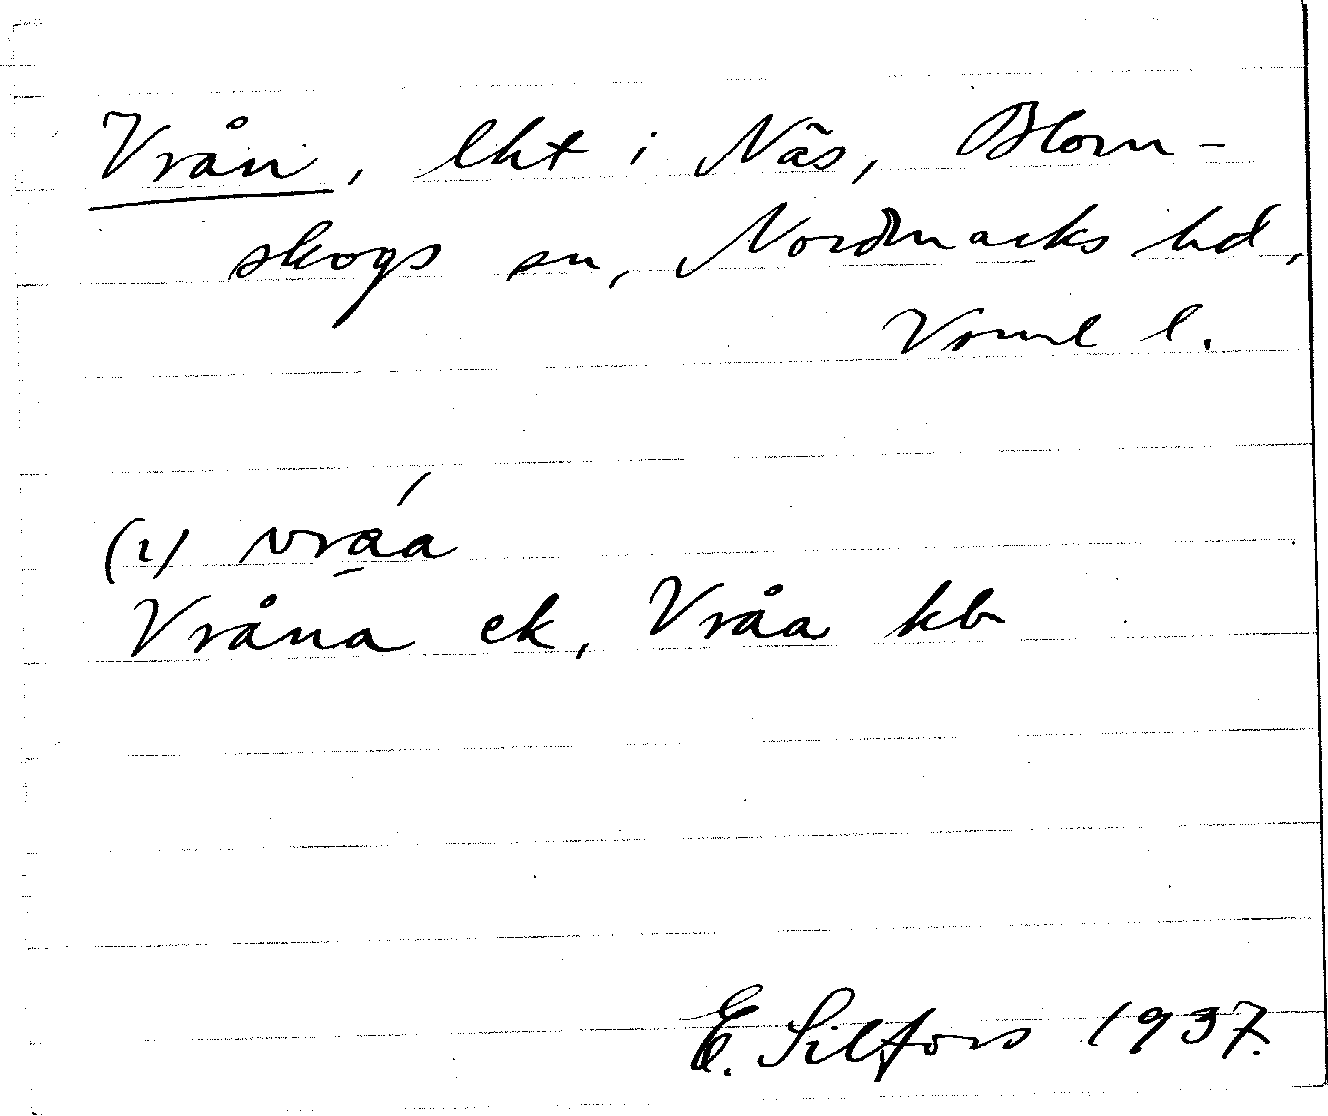 Vrån, lht i Näs, Blom-
skogs sn, Nordmarks hd,
Vrml l.
(i) vra̱a´
Vråna ek, Vråa kb
E. Silfors 1937.